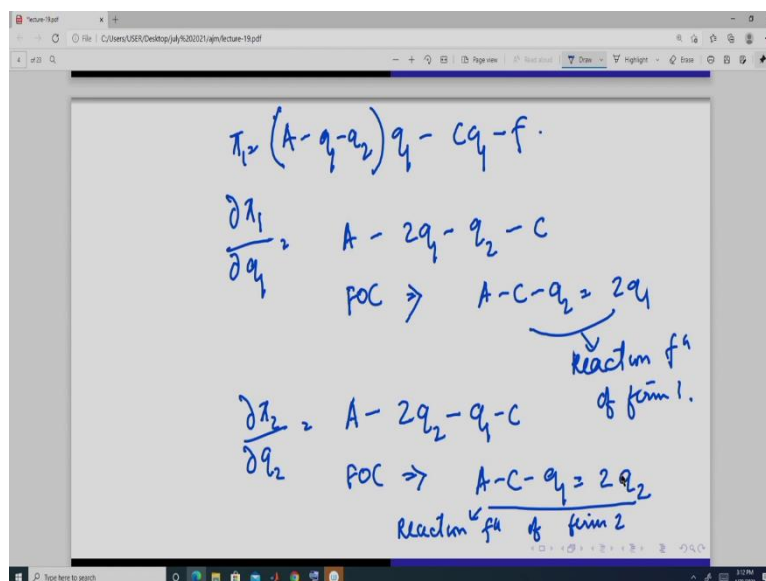 *lecture-19.pdf
File | C:/Users/USER/Desktop/july%202021/ajm/lecture-19.pdf
4 of 23
Page view | Read aloud | Draw | Highlight | Erase
π₁ = (A - q₁ - q₂) q₁ - Cq₁ - f.
∂π₁/∂q₁ = A - 2q₁ - q₂ - C
FOC ⇒ A - C - q₂ = 2q₁
Reaction fⁿ
of firm 1.
∂π₂/∂q₂ = A - 2q₂ - q₁ - C
FOC ⇒ A - C - q₁ = 2q₂
Reaction fⁿ of firm 2
Type here to search
3:12 PM